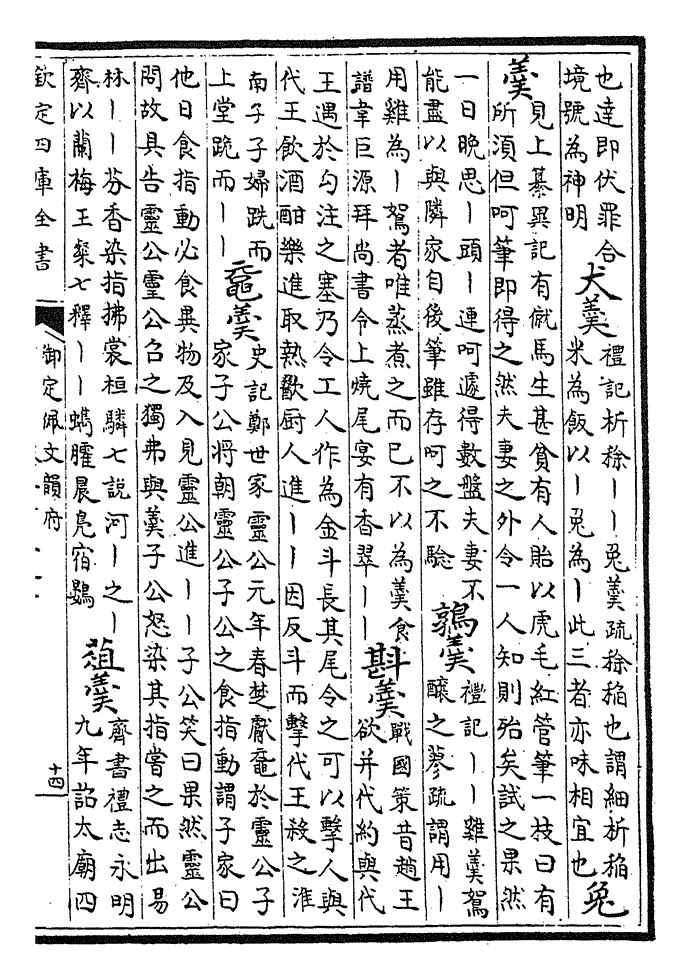 也逹即伏罪合
境號為神明
犬羹
禮記析稌丨丨兔羹疏稌稲也謂細析稲
米為飯以丨兔為丨此三者亦味相宜也
兔
羹
見上綦異記有僦馬生甚貧有人貽以虎毛紅管筆一枝曰有
所湏但呵筆即得之然夫妻之外令一人知則殆矣試之果然
一日晚思丨頭丨連呵遽得數盤夫妻不
能盡以與隣家自後筆雖存呵之不驗
鶉羹
禮記丨丨雞羹鴽
釀之蓼疏謂用丨
用雞為丨鴽者唯蒸煮之而已不以為羹食
譜韋巨源拜尚書令上燒尾宴有香翠丨丨
斟羹
戰國策昔趙王
欲并代約與代
王遇於勾注之塞乃令工人作為金斗長其尾令之可以擊人與
代王飲酒酣樂進取熱歠厨人進丨丨因反斗而擊代王殺之淮
南子子婦跣而
上堂跪而丨丨
黿羹
史記鄭世家靈公元年春楚獻黿於靈公子
家子公將朝靈公子公之食指動謂子家曰
他日食指動必食異物及入見靈公進丨丨子公笑曰果然靈公
問故具告靈公靈公召之獨弗與羹子公怒染其指嘗之而出易
林丨丨芬香染指拂裳桓驎七說河丨之丨
齊以蘭梅王粲七釋丨丨蠵臛晨鳬宿鷃
葅羹
齊書禮志永明
九年詔太廟四
欽定四庫全書
御定佩文韻府
十四